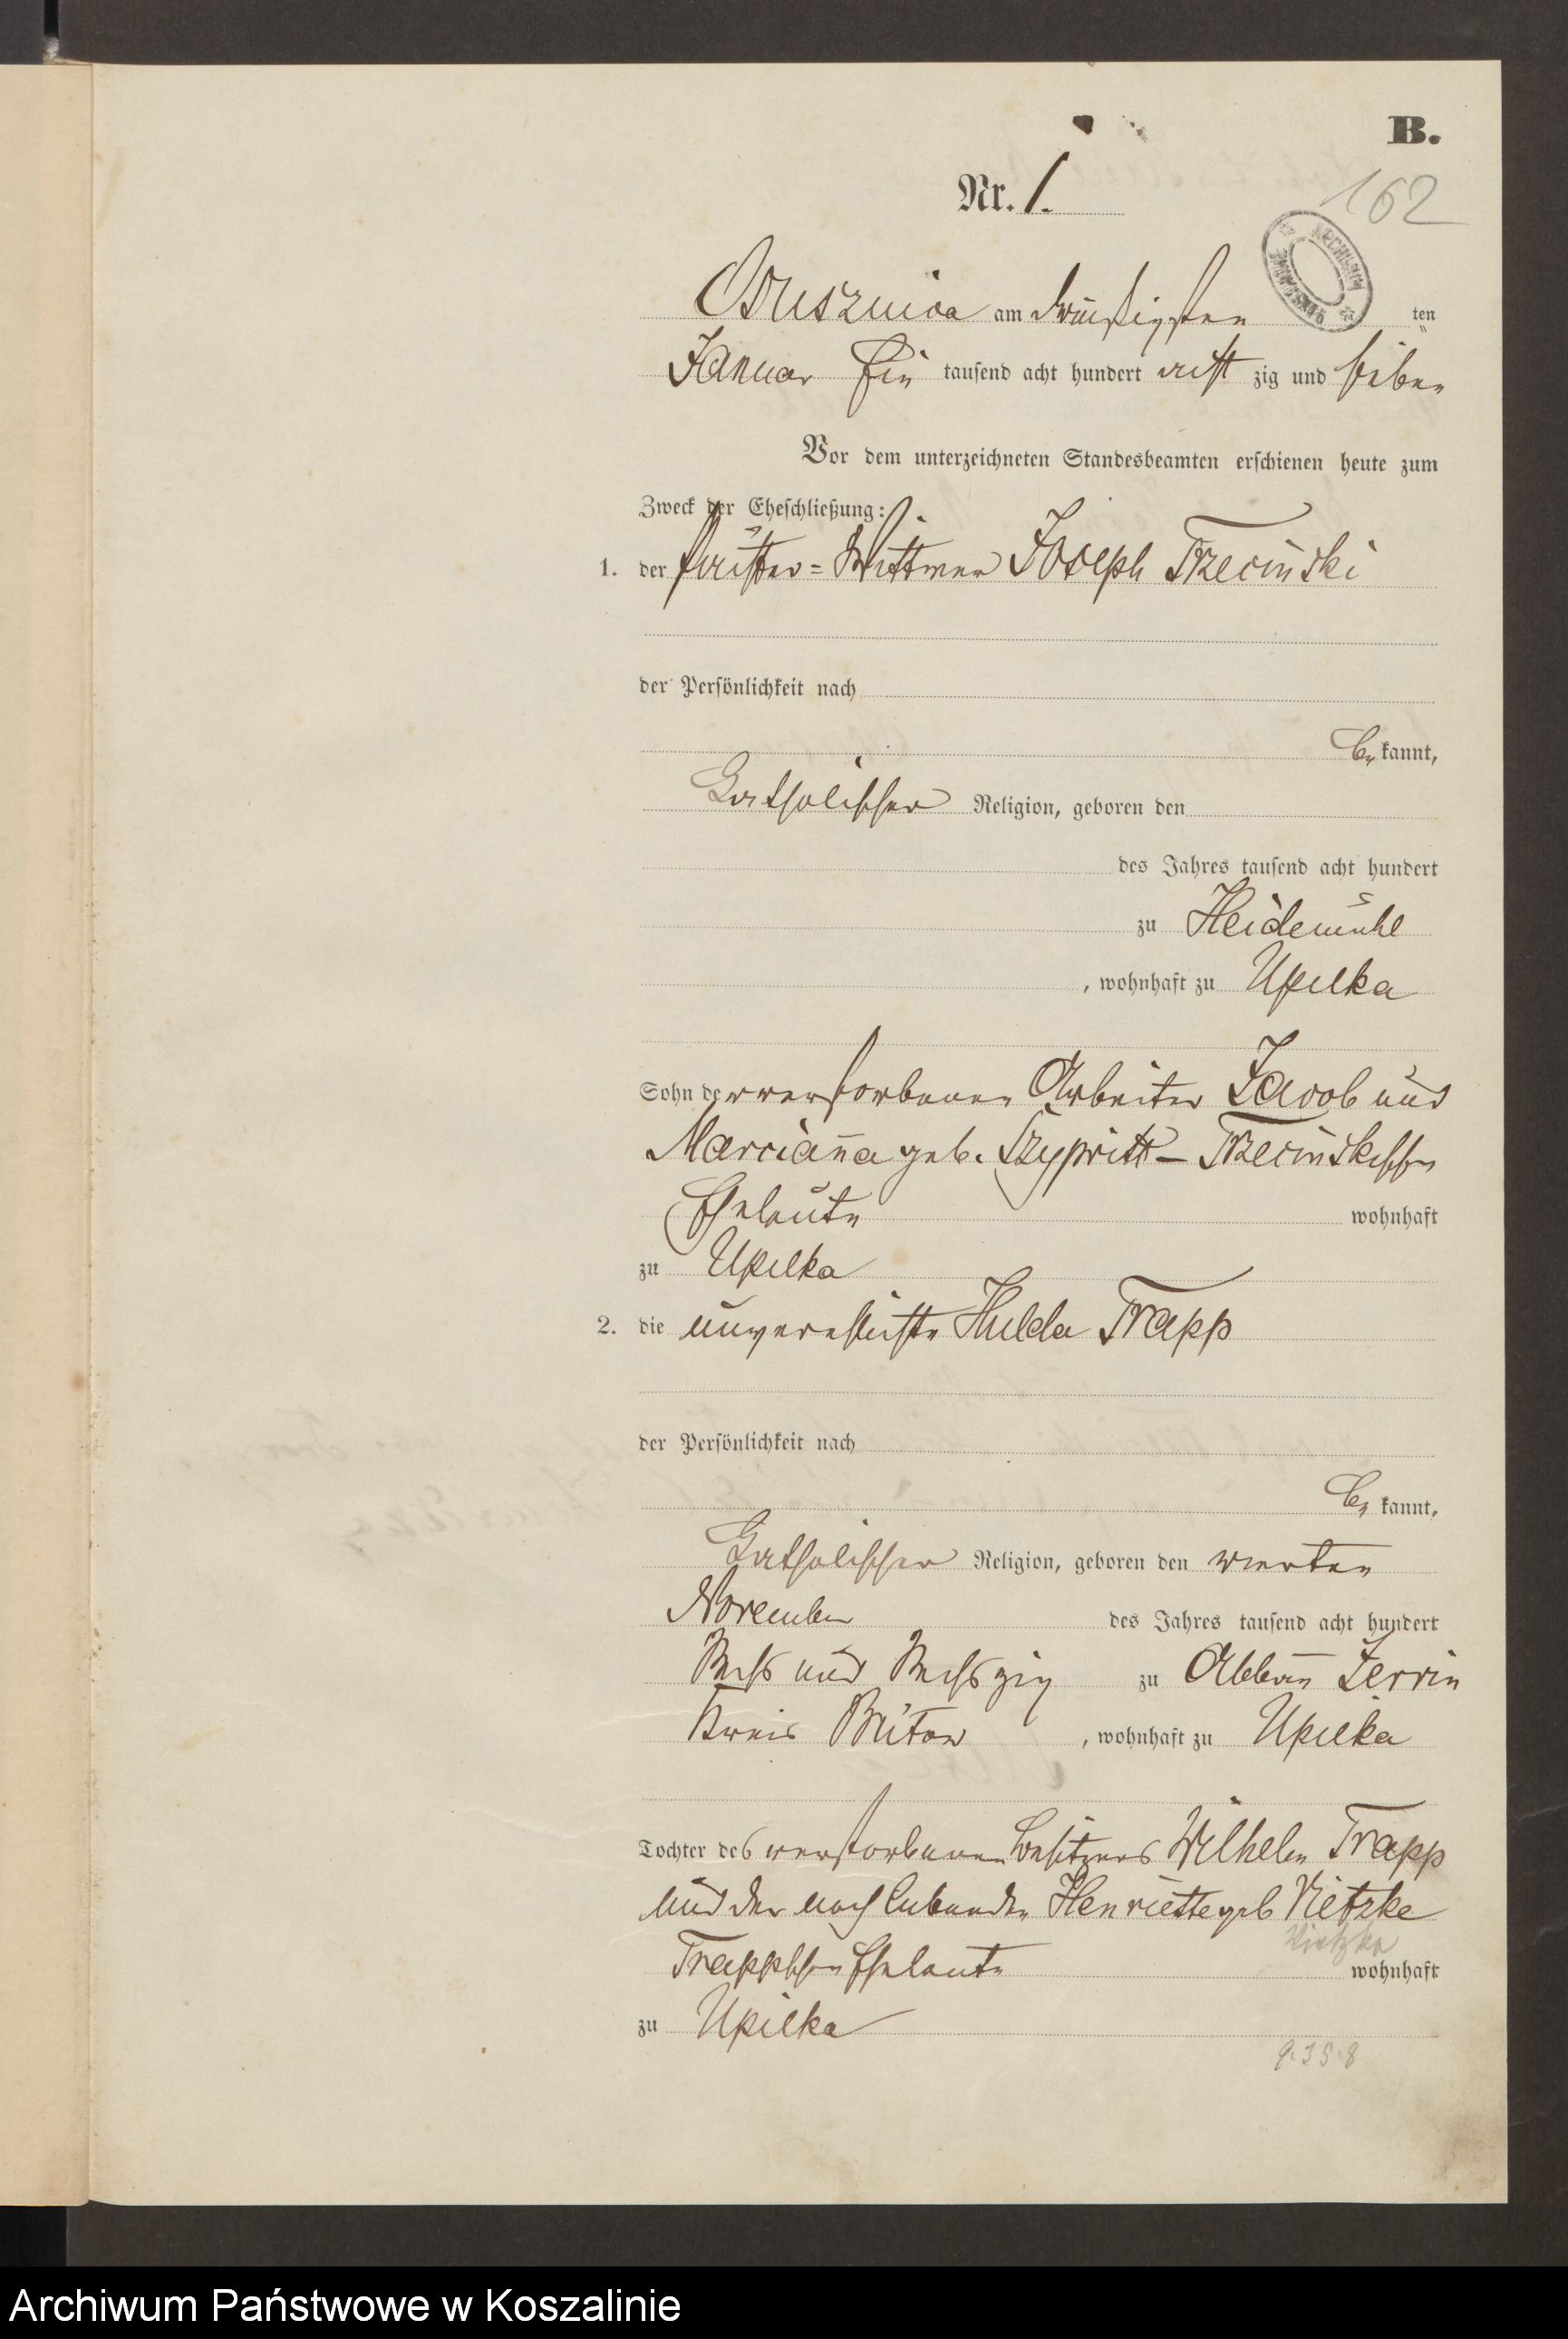 B.
Nr. 1.
162
ARCHIWUM
Ossusznica am dreißigsten ten
Januar Ein tausend acht hundert acht zig und sieben
Vor dem unterzeichneten Standesbeamten erschienen heute zum
Zweck der Eheschließung:
1. der Wittwer Joseph Trzecinski
der Persönlichkeit nach
be kannt,
Katholischer Religion, geboren den
des Jahres tausend acht hundert
zu Heidemühl
, wohnhaft zu Upilka
Sohn der verstorbenen Arbeiter Jacob und
Marcianna geb. Trzecinskischen
Eheleute wohnhaft
zu Upilka
2. die unverehelichte Hulda Trapp
der Persönlichkeit nach
be kannt,
Katholischer Religion, geboren den vierten
November des Jahres tausend acht hundert
sechs und sechszig zu Abbau Zerrin
Kreis Bütow , wohnhaft zu Upilka
Tochter des verstorbenen Besitzers Wilhelm Trapp
und der noch lebenden Henriette geb Vietzke
Vietzke
Trappschen Eheleute wohnhaft
zu Upilka
Archiwum Państwowe w Koszalinie